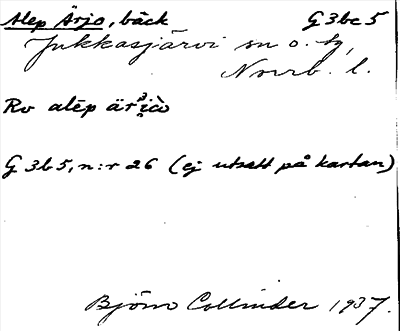 Alep Ärjo, bäck G3bc5
Jukkasjärvi sn o. tg,
Norrb. l.
Rv alep
G3b5, n:r 26 (ej utsatt på kartan)
Björn Collinder 1937.